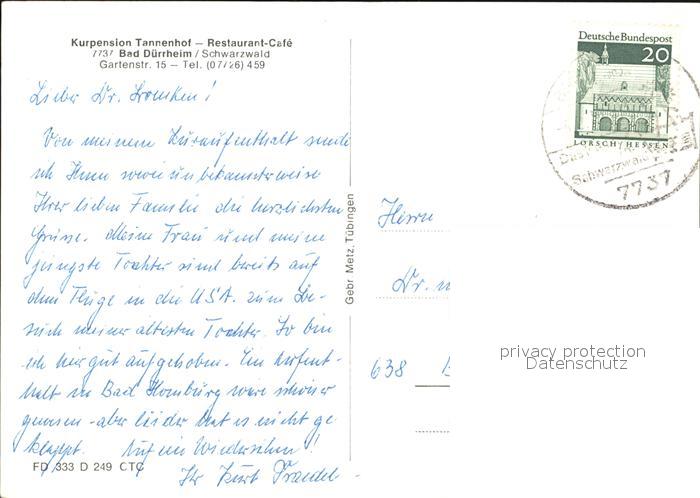 Kurpension Tannenhof — Restaurant-Café
7737 Bad Dürrheim / Schwarzwald
Gartenstr. 15 — Tel. (07726) 459
Lieber Dr.
Von meinem Kuraufenthalt sende
ich Ihnen sowie unbekannterweise
Ihrer lieben Familie die herzlichsten
Grüsse. Meine Frau und meine
jüngste Tochter sind bereits auf
dem Fluge in die USA. zum Be-
such meiner ältesten Tochter. So bin
ich hier gut aufgehoben. Ein Aufent-
halt in Bad Homburg wäre schöner
gewesen - aber leider hat es nicht ge
klappt. Auf ein Wiedersehen!
Ihr Kurt
FD 333 D 249 CTC
Gebr Metz, Tübingen
Deutsche Bundespost
20
LORSCH / HESSEN
Schwarzwald
7737
Herrn
Dr. m
638 B
privacy protection
Datenschutz